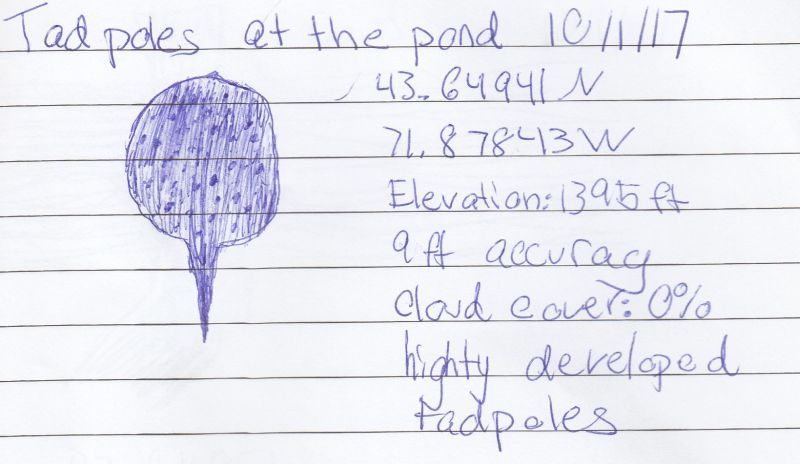 Tadpoles at the pond 10/1/17
43.64941 N
71.87843 W
Elevation: 1395 ft
9 ft accuracy
Cloud cover: 0%
highty developed
tadpoles